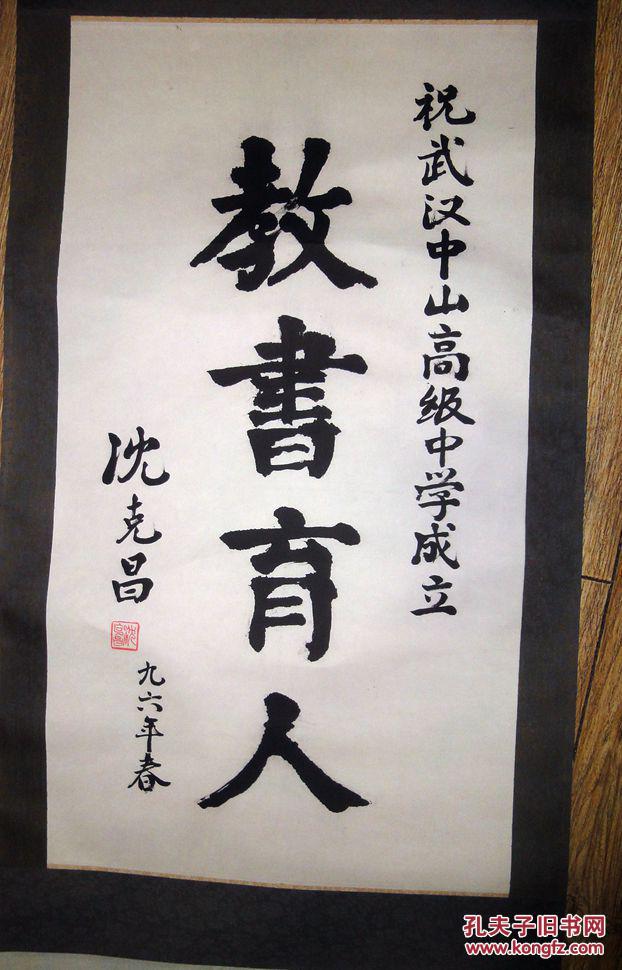 祝武汉中山高级中学成立
教書育人
沈克昌
九六年春
孔夫子旧书网
www.kongfz.com